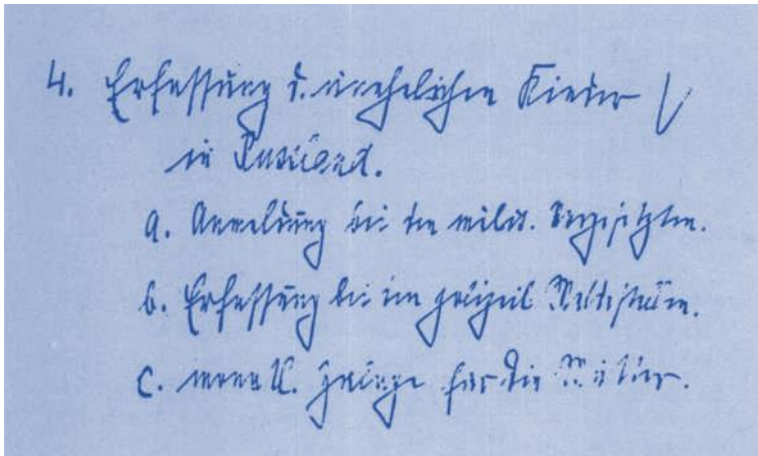 4. Erfassung d. unehelichen Kinder
in Russland.
a. Anmeldung bei den milit. Vorgesetzten.
b. Erfassung bei den polizeil. Meldestellen.
c. für die Mütter.